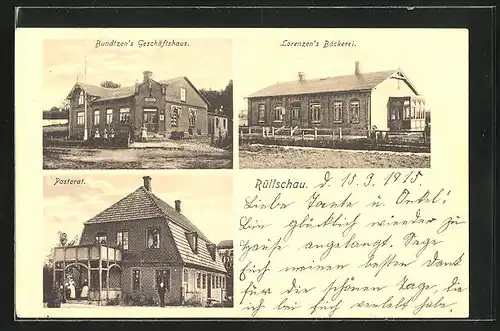 Bundtzen's Geschäftshaus.
Lorenzen's Bäckerei.
Pastorat.
Rüllschau. d. 18. 3. 1915
Liebe Tante u. Onkel!
Bin glücklich wieder zu
Hause angelangt. Sage
Euch meinen besten Dank
für die schönen Tage, die
ich bei Euch verlebt habe.